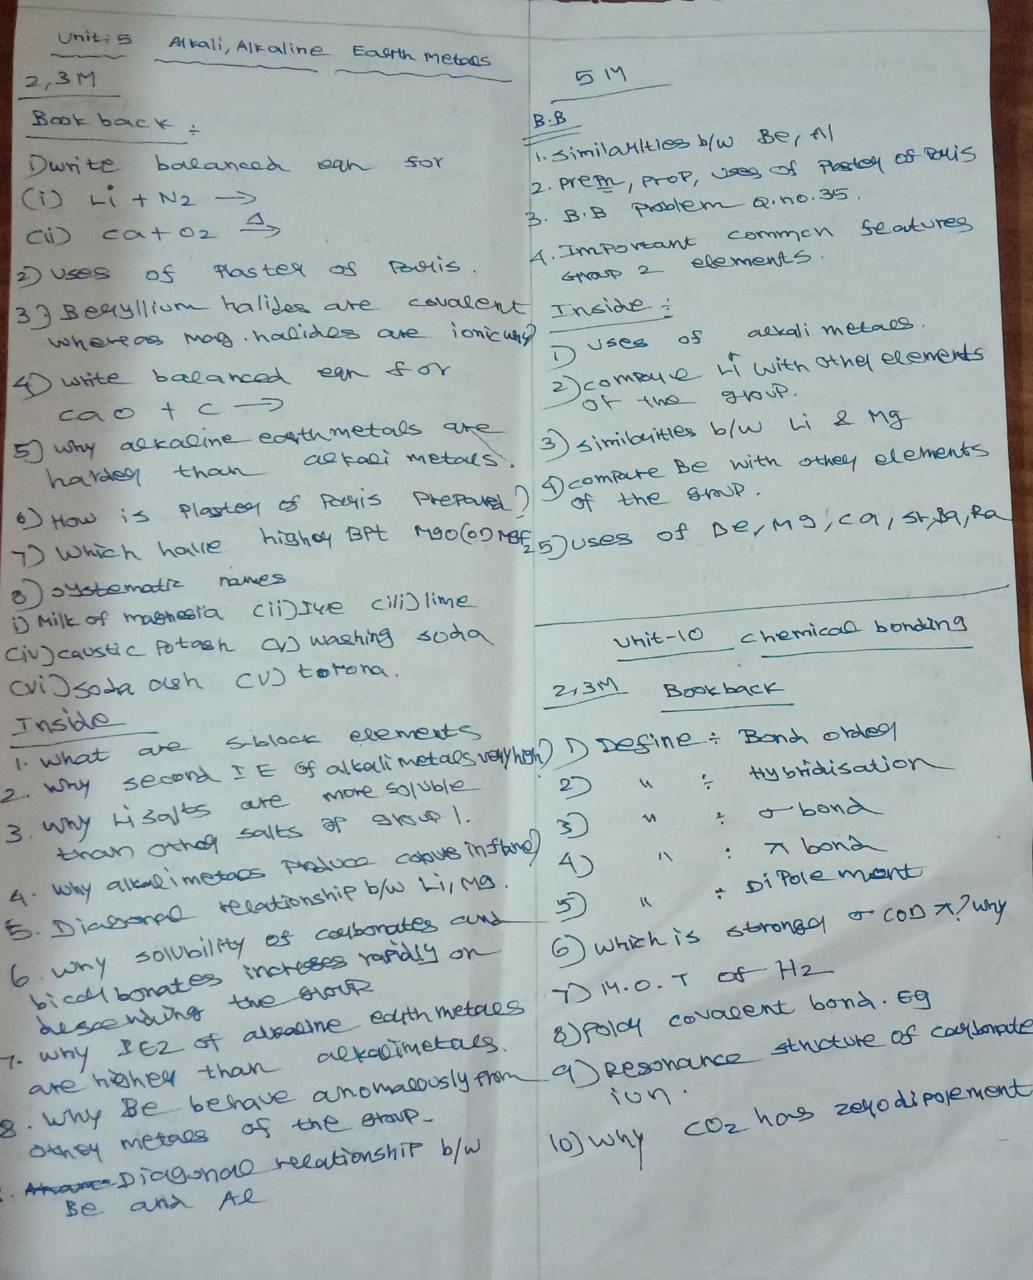 Unit: 5 Alkali, Alkaline Earth Metals
2,3M
Book back :
1) write balanced eqn for
(i) Li + N2 →
(ii) ca + O2 Δ→
2) Uses of Plaster of Paris.
3) Beryllium halides are covalent
whereas mag. halides are ionic why?
4) write balanced eqn for
cao + c →
5) why alkaline earth metals are
harder than alkali metals.
6) How is Plaster of Paris Prepared?
7) Which have higher BPt MgO (or) MgF2
8) systematic names
i) Milk of magnesia (ii) lye (iii) lime
(iv) caustic Potash (v) washing soda
(vi) soda ash (v) torona.
Inside
1. What are s-block elements
2. Why second I E of alkali metals very high?
3. why Li salts are more soluble
than other salts of group 1.
4. Why alkali metals Produce colour in flame?
5. Diagonal relationship b/w Li, Mg.
6. why solubility of carbonates and
bicarbonates increses rapidly on
descending the group
7. why IE2 of alkaline earth metals
are higher than alkali metals.
8. Why Be behave anomalously from
other metals of the group-
Diagonal relationship b/w
Be and Al
5 M
B.B
1. Similarities b/w Be, Al
2. Prepn, ProP, Uses of Plaster of Paris
3. B.B Problem Q.no.35.
4. Important common features
Group 2 elements.
Inside :
1) Uses of alkali metals.
2) compare Li with other elements
of the group.
3) Similarities b/w Li & Mg
4) compare Be with other elements
of the group.
5) Uses of Be, Mg, ca, sr, Ba, Ra
Unit-10 chemical bonding
2,3M Bookback
1) Define ÷ Bond order
2) " ÷ Hybridisation
3) " : σ bond
4) " : π bond
5) " ÷ DiPole moment
6) which is stronger σ (or) π? why
7) M.O.T of H2
8) Polar covalent bond. Eg
9) Resonance structure of carbonate
ion.
10) Why CO2 has zero dipolement